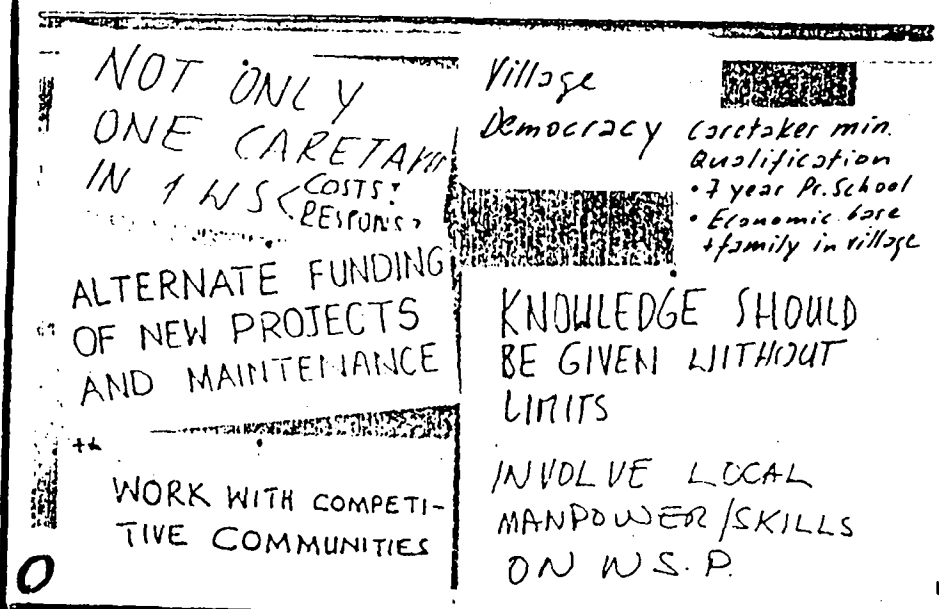 NOT ONLY
ONE CARETAKER
IN 1 WS < COSTS?
RESPONS?
ALTERNATE FUNDING
OF NEW PROJECTS
AND MAINTENANCE
WORK WITH COMPETI-
TIVE COMMUNITIES
Village
Democracy
Caretaker min.
Qualification
• 7 year Pr. School
• Economic base
+ family in village
KNOWLEDGE SHOULD
BE GIVEN WITHOUT
LIMITS
INVOLVE LOCAL
MANPOWER/SKILLS
ON W.S.P.